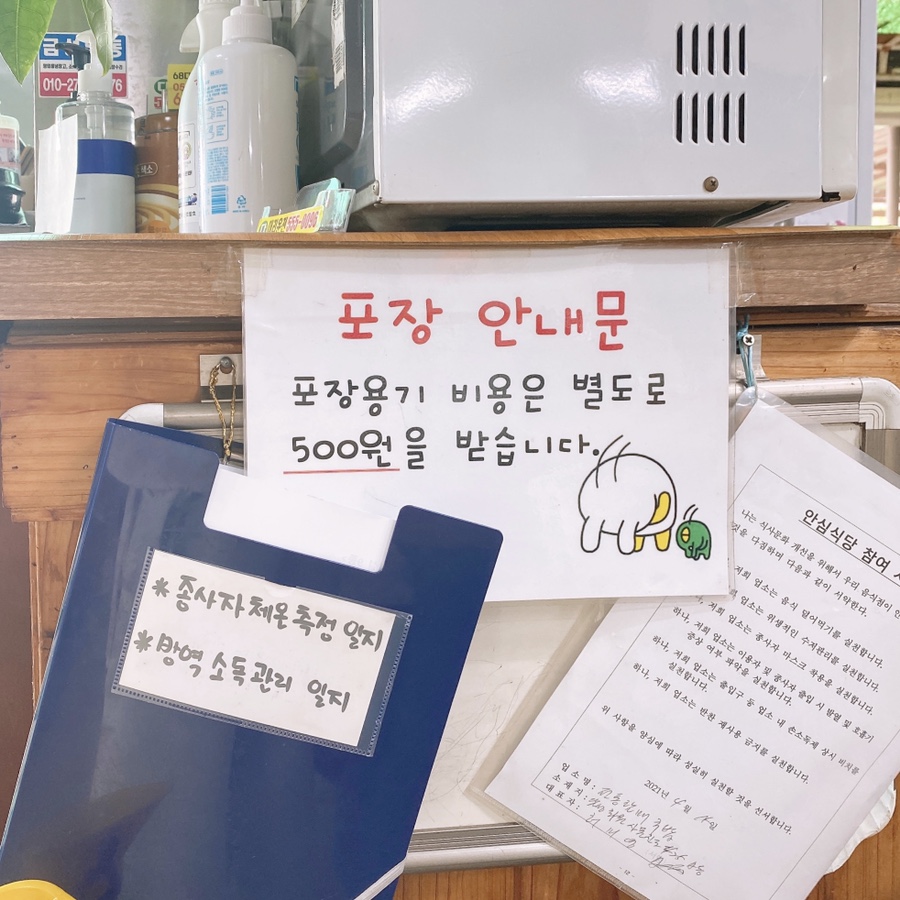 010-27
76
555-0096
포장 안내문
포장용기 비용은 별도로
500원을 받습니다.
* 종사자 체온 측정 일지
* 방역 소독 관리 일지
안심식당 참여
나는 식사문화 개선을 위해서 우리 음식점이 안
것을 다짐하며 다음과 같이 서약한다.
저희 업소는 음식 덜어먹기를 실천합니다.
업소는 위생적인 수저관리를 실천합니다.
하나, 저희 업소는 종사자 마스크 착용을 실천합니다.
하나, 저희 업소는 이용자 및 종사자 출입 시 발열 및 호흡기
증상 여부 파악을 실천합니다.
하나, 저희 업소는 출입구 등 업소 내 손소독제 상시 비치를
실천합니다.
하나, 저희 업소는 반찬 재사용 금지를 실천합니다.
위 사항을 양심에 따라 성실히 실천할 것을 선서합니다.
2021년 4월 일
업 소 명 :
소 재 지 :
대 표 자 :